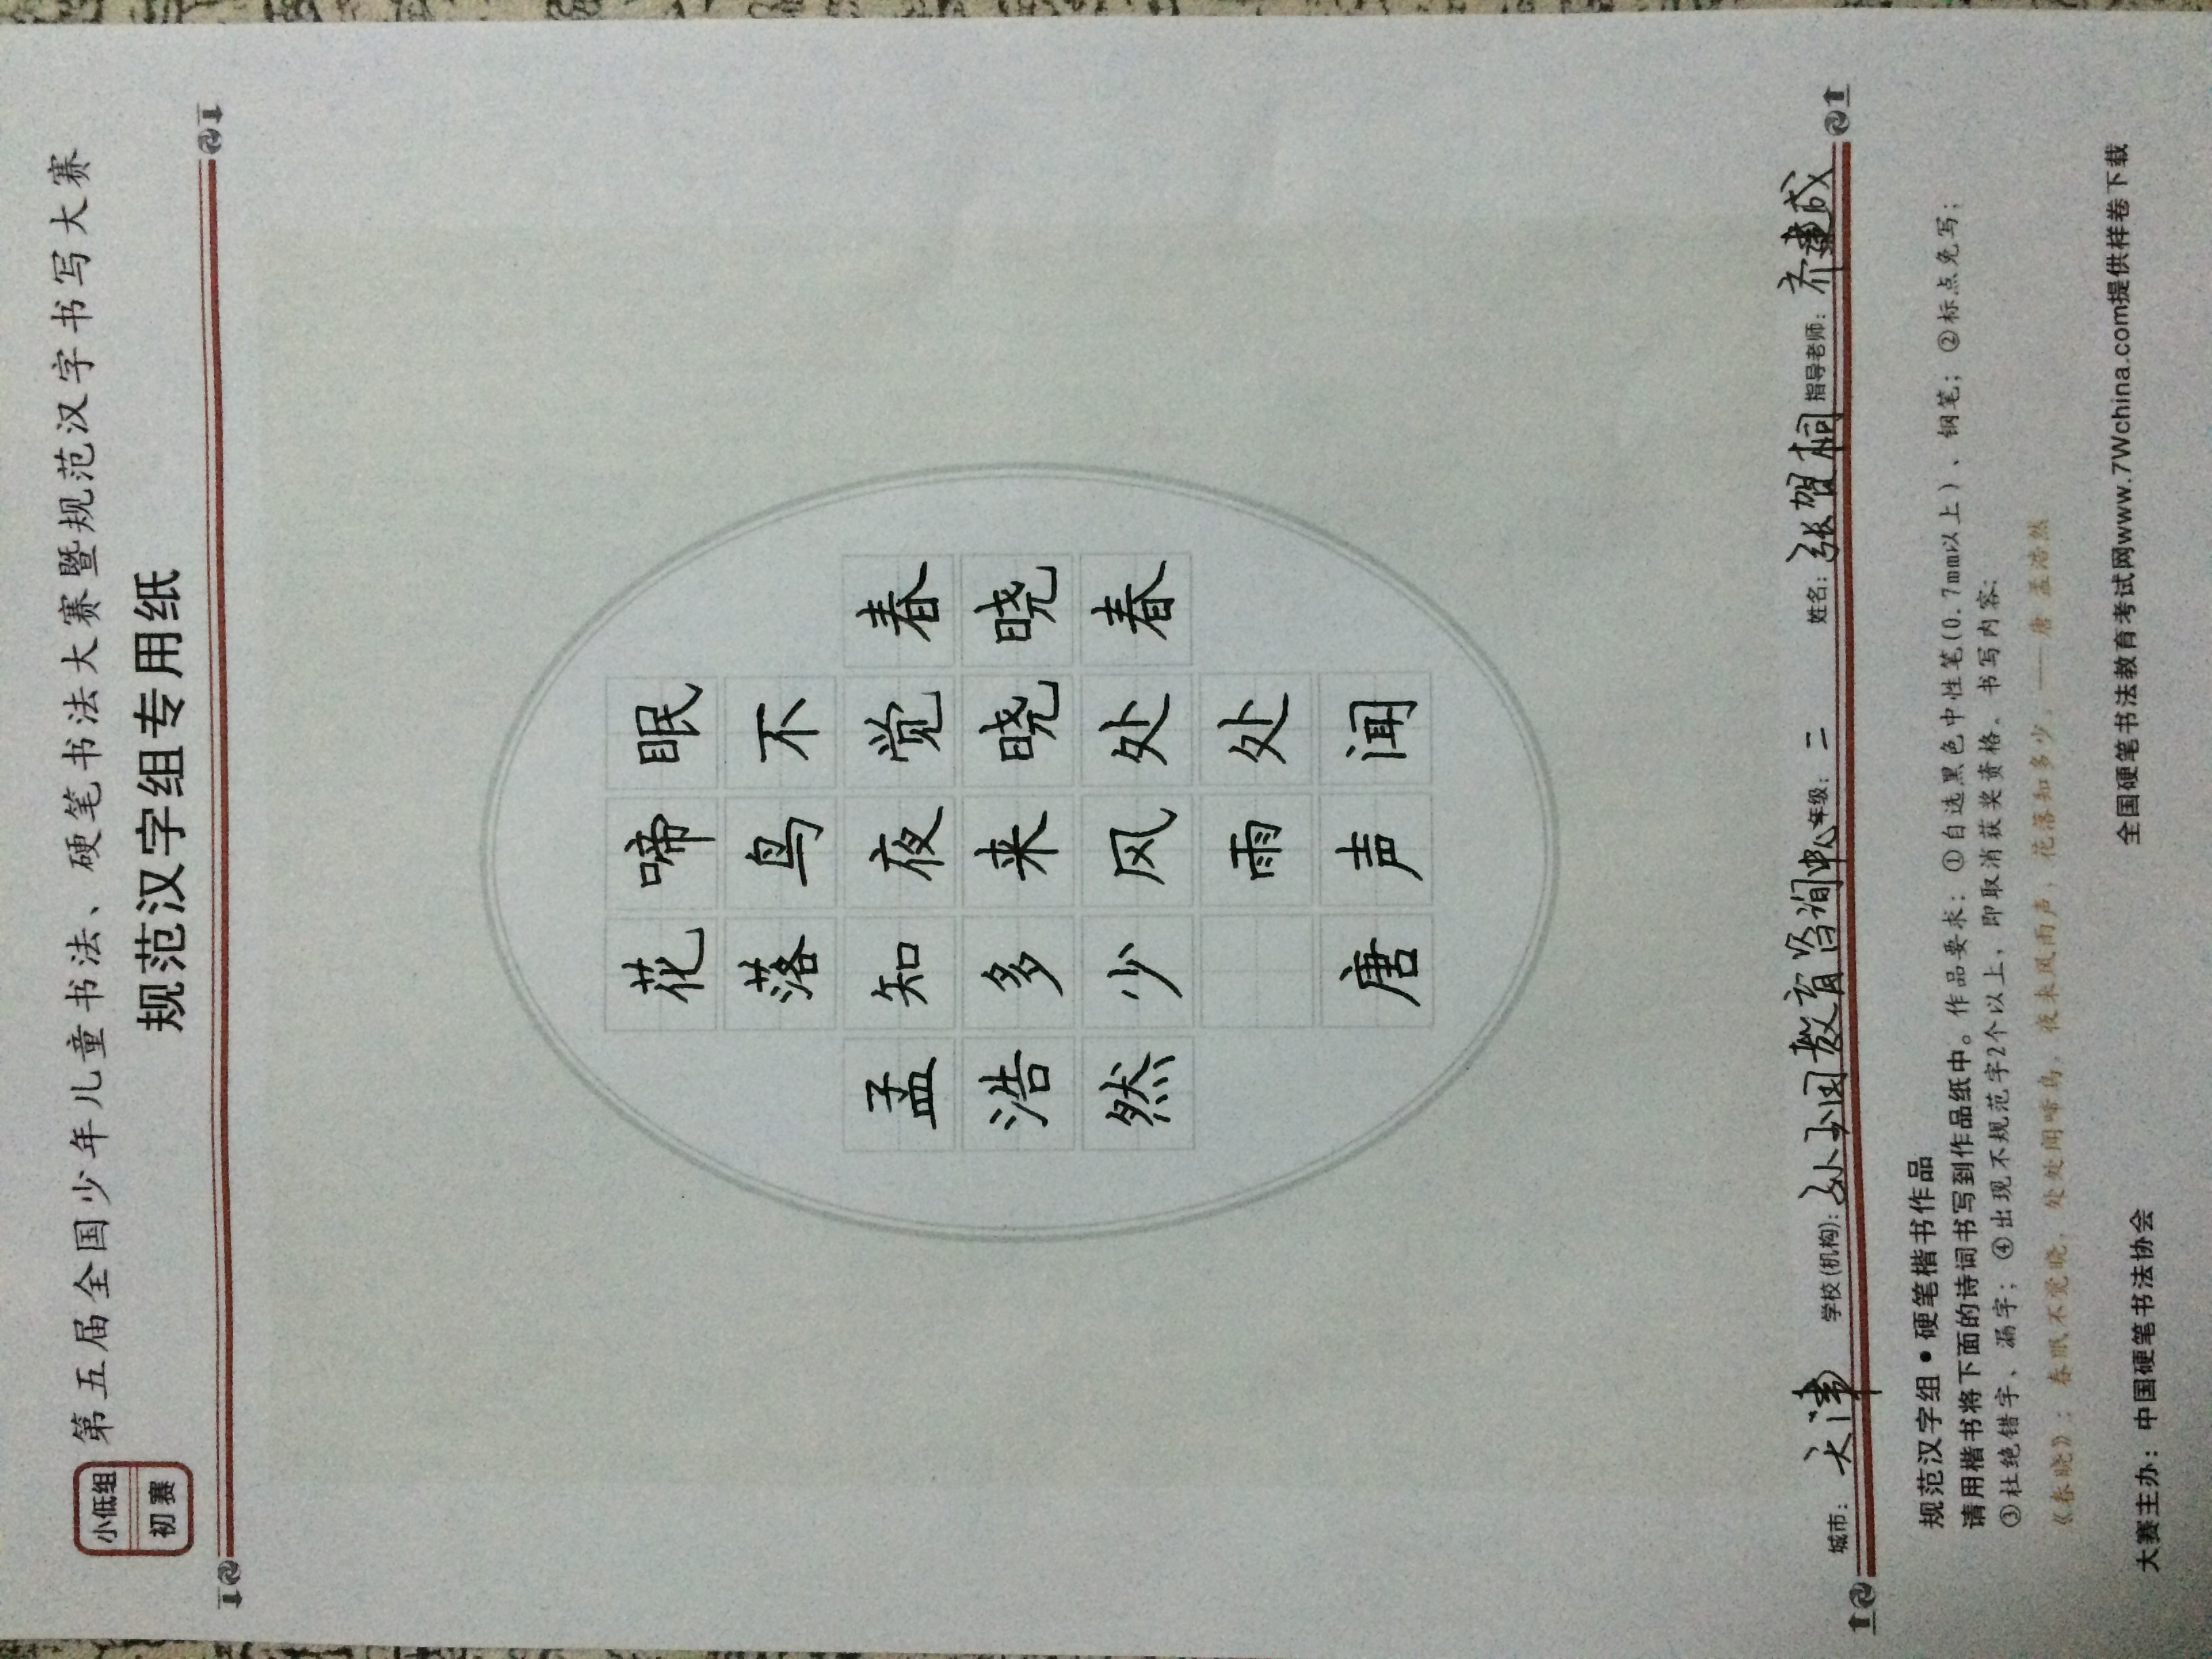 小低组
初赛
第五届全国少年儿童书法、硬笔书法大赛暨规范汉字书写大赛
规范汉字组专用纸
春晓春
眠不觉晓处处闻
啼鸟夜来风雨声
花落知多少 唐
孟浩然
城市：天津 学校(机构)：教育咨询中心 年级：二 姓名：张贺桐 指导老师：齐
规范汉字组•硬笔楷书作品
请用楷书将下面的诗词书写到作品纸中。作品要求：①自选黑色中性笔(0.7mm以上)、钢笔；②标点免写；
③杜绝错字、漏字；④出现不规范字2个以上，即取消获奖资格。书写内容：
《春晓》：春眠不觉晓，处处闻啼鸟，夜来风雨声，花落知多少。——唐 孟浩然
大赛主办：中国硬笔书法协会 全国硬笔书法教育考试网www.7Wchina.com提供样卷下载